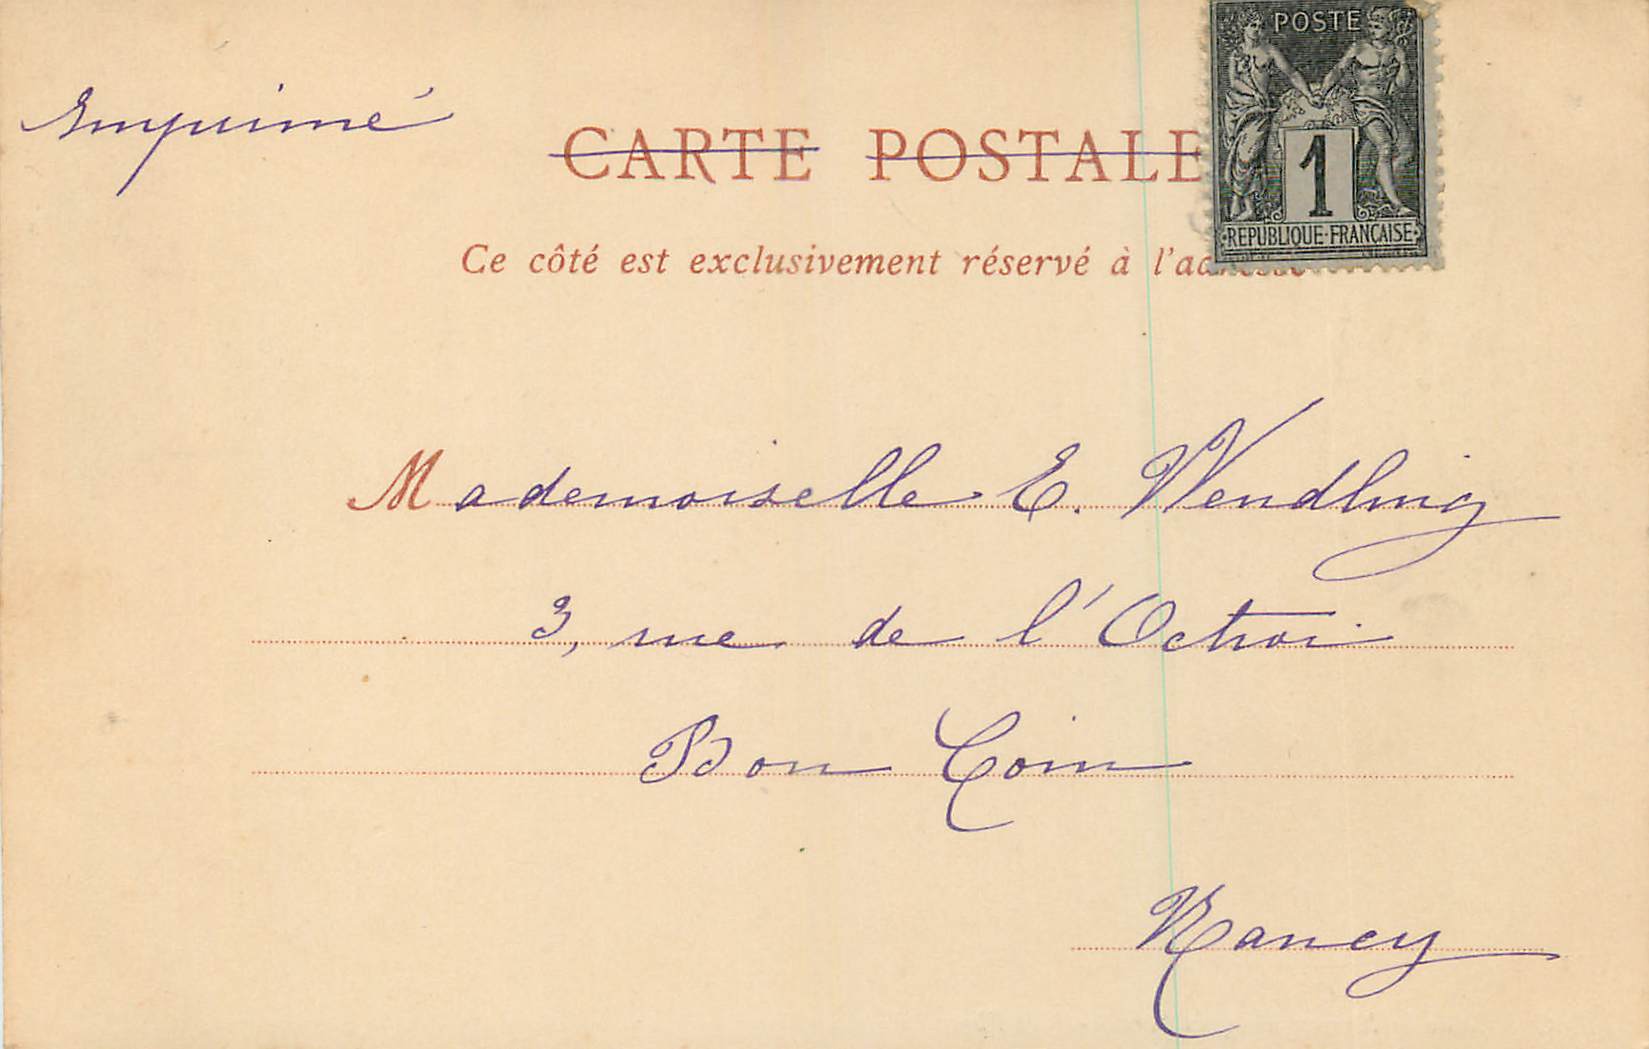 Imprimé
POSTE
1
REPUBLIQUE FRANÇAISE
CARTE POSTALE
Ce côté est exclusivement réservé à l'adresse
Mademoiselle E. Wendling
3, rue de l'Octroi
Bon Coin
Nancy